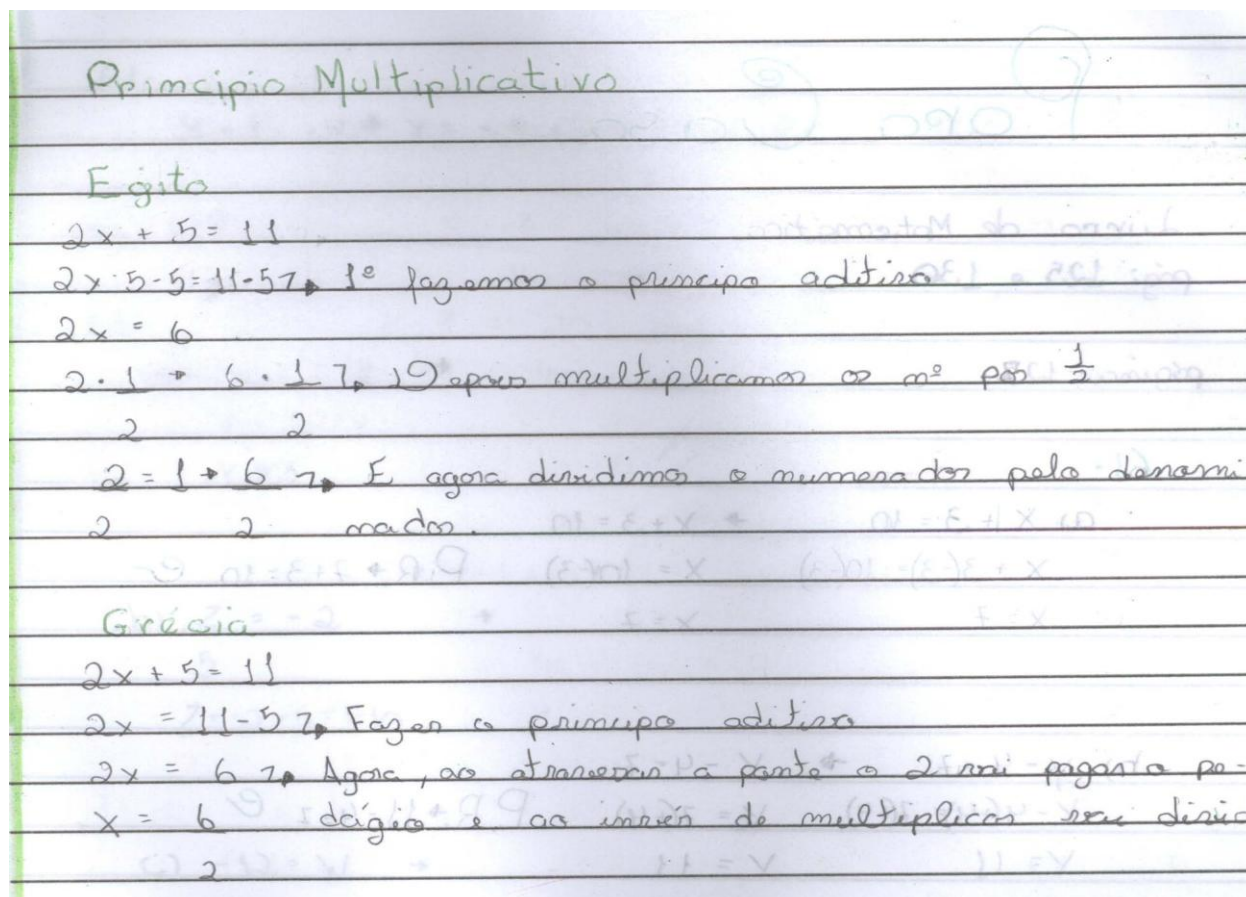 Principio Multiplicativo
Egito
2x + 5 = 11
2x 5-5 = 11-5 1º fazemos o principo aditivo
2x = 6
2 · 1 6 · 1 Depois multiplicamos os nº por 1/2
2 2
2 = 1 6 E agora dividimos o numerador pelo denomi
2 2 nador.
Grécia
2x + 5 = 11
2x = 11-5 Fazer o principo aditivo
2x = 6 Agora, ao atravessar a ponte o 2 pagar o pe-
x = 6 dágio e ao invés de multiplicar divi
2